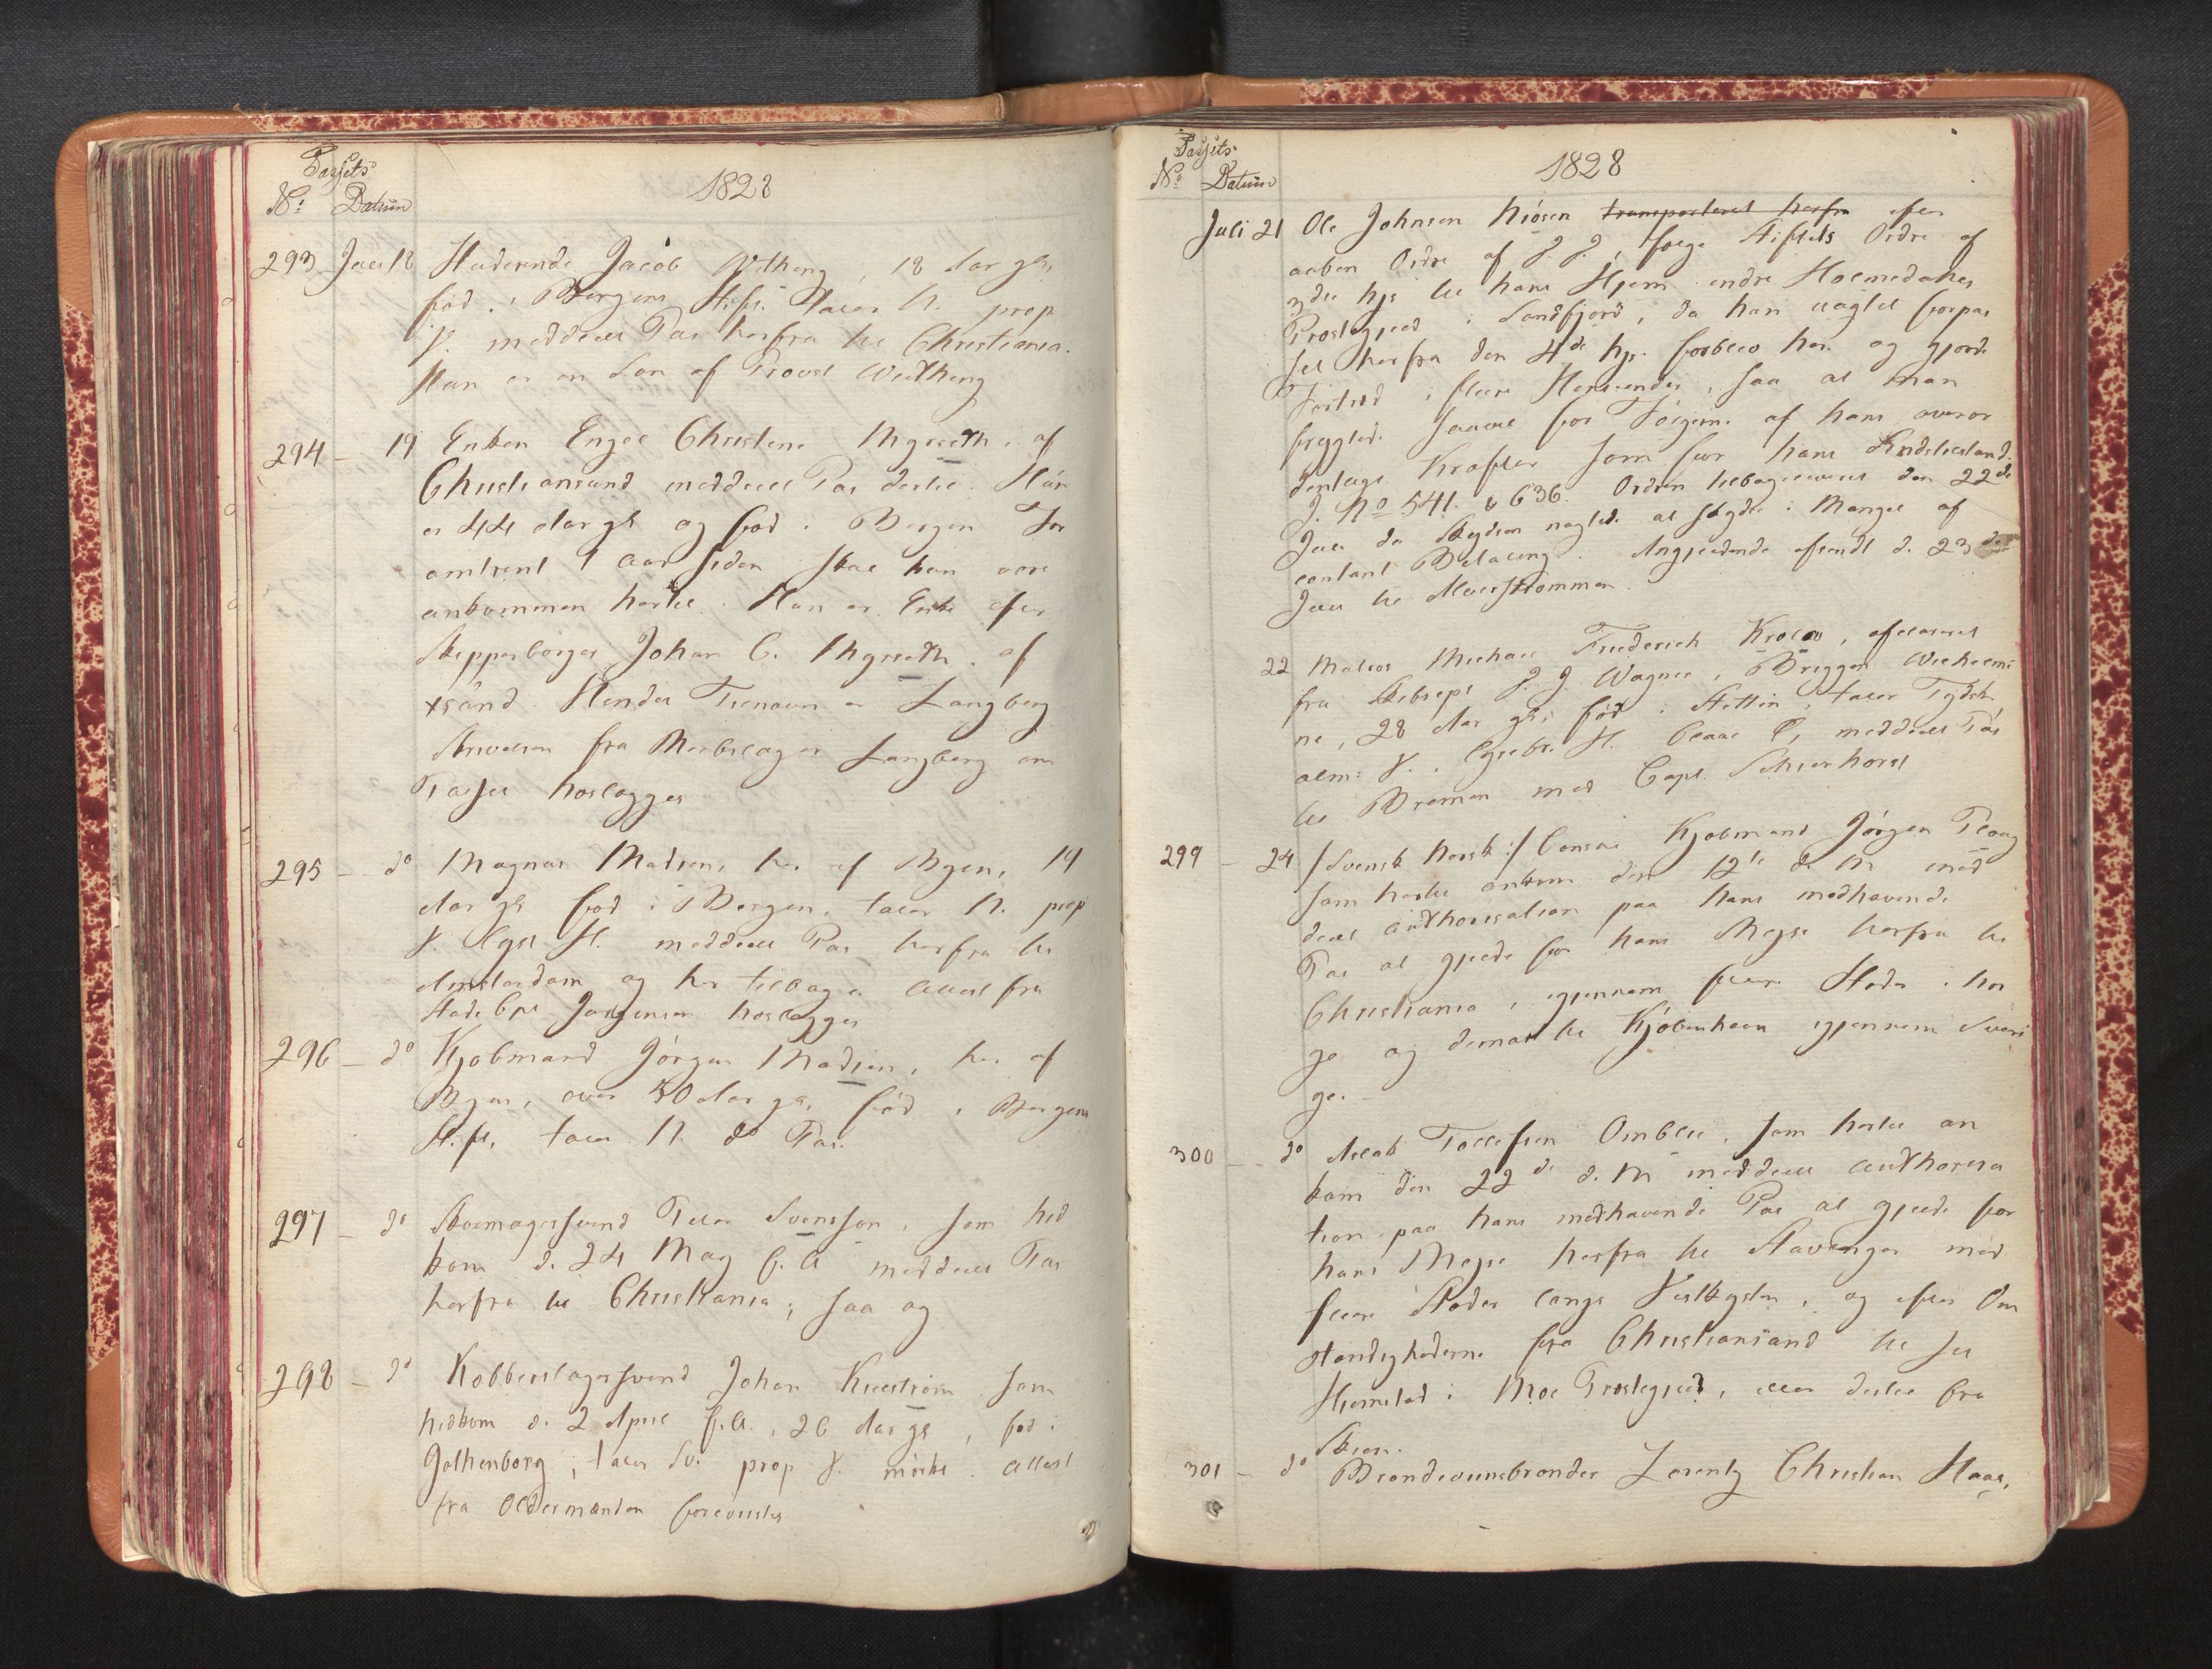 Passets
No Datum
1828
293 Juli 18 Studerende Jacob Withing, 18 Aar gl,
fød i Bergens Stift taler N. prop
V. meddeelt Pas herfra til Christiania.
Han er en Søn af Provst
294 - 19 Enken Engel Christine af
Christiansund meddeelt Pas dertil. Hun
er 44 Aar gl og fød i Bergen For
omtrent 1 Aar siden skal hun være
ankommen hertil. Hun er Enke efter
Skipperborger Johan C. af
xsund. Hendes Fienavn er Langberg
Skrivelse fra Langberg om
Passet hoslægges
295 - do Magnus Madsen, her af Byen, 19
Aar gl fød i Bergen, taler N. prop
V. meddeelt Pas herfra til
Amsterdam og her tilbage Attest fra
Jørgensen hoslægges
296 - do Kjøbmand Jørgen Madsen, her af
Byen, over 50 Aar gl, fød i Bergens
Stift, taler N. do Pas.
297 - do Skomagersvend Peter Svensson, som hid
kom d. 24 May f. A meddeelt Pas
herfra til Christiania, saa og
298 - do Kobberslagersvend Johan som
hidkom d. 2 April f. A., 26 Aar gl, fød i
Gothenborg, taler Sv. prop V. mørke. Attest
fra Oldermanden forevistes
Passets
No Datum
1828
Juli 21 Ole Johnsen transporteret herfra efter
aaben Ordre af P. P., følge Stiftets Ordre af
3die hjs til hans Hjem indre Holmedahls
Præstegjeld i Søndfjord, da han nægtet forpas
set herfra den 4de hjs. forblev her og gjorde
Fortræd i flere Henseender, saa at man
frygtede saavel for Følgerne af hans overor
dentlige Kræfter som for hans Sindstilstand.
J. No 541. & 636. Ordren tilbageleveret den 22de
Juli da Skydsen nægtede at skydse i Mangel af
contant Betaling. Angjeldende afsendt d. 23de
Juli til Alverstrømmen.
22 Matros Michael Friederich afløset
fra Skibscpt J. J. Wagner, Briggen Wilhelmi
ne, 28 Aar gl, fød i Stettin, taler Tydsk,
alm: V. H. blaae meddeelt Pas
til Bremen med Capt. Schierhorst
299 - 24 /:Svensk Norsk:/ Consul Kjøbmand Jørgen Ploug
som hertil ankom den 12te d. M med
deelt Authorisation paa hans medhavende
Pas at gjelde for hans Rejse herfra til
Christiania, igjennem flere Stæder i Nor
ge og dernæst til Kjøbenhavn igjennem Sveri
ge. -
300 - do Aslak Tollefsen Omblie, som hertil an
kom den 22de d. M meddeelt Authorisa
tion paa hans medhavende Pas at gjelde for
hans Rejse herfra til Stavanger med
flere Stæder langs Vestkysten, og efter Om
stændighederne fra Christiansand til sit
Hjemsted i Moe Præstegjeld, eller dertil fra
Skien.
301 - do Brændeviinsbrænder Lorentz Christian Haas,